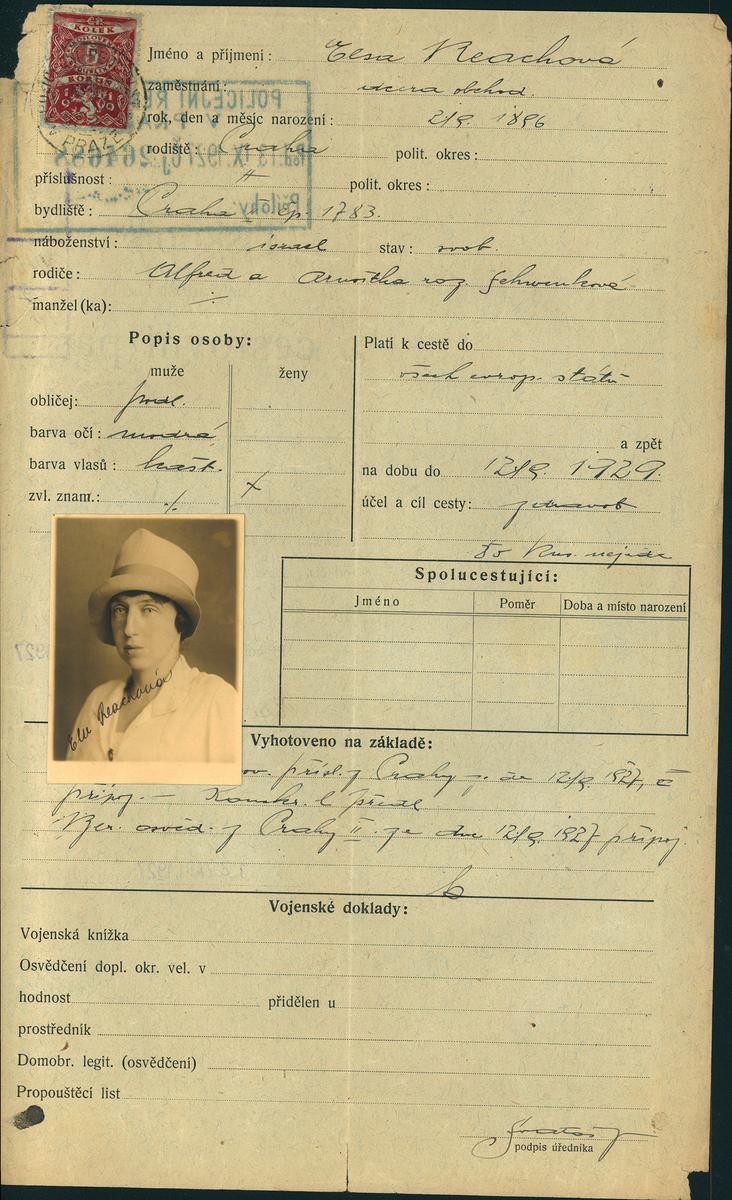 KOLEK
5
KORUN
PRAZE
POLICEJNÍ ŘE
V PRA
Pod. 13. IX. 1927 Čj. 264688
Přílohy:
Jméno a příjmení: Elsa Reachová
zaměstnání: dcera obchod.
rok, den a měsíc narození: 2/9. 1896
rodiště: Praha polit. okres:
příslušnost: " polit. okres:
bydliště: Praha čp. 1783.
náboženství: israel stav: svob.
rodiče: Alfred a Arnoštka roz. Schwenková
manžel (ka): ÷
Popis osoby:
muže ženy
obličej: podl.
barva očí: modrá
barva vlasů: kašt.
zvl. znam.: ÷
Platí k cestě do
všech evrop. států
a zpět
na dobu do 12/9. 1929.
účel a cíl cesty: zdravot
Do Rus. nejede
Spolucestující:
Jméno Poměr Doba a místo narození
Else Reachová
1927
Vyhotoveno na základě:
ov. přísl. z Prahy ze 12/9. 1927, č
připoj. —
Ber. osvěd. z Prahy II. ze dne 12/9. 1927 připoj.
Vojenské doklady:
Vojenská knížka
Osvědčení dopl. okr. vel. v
hodnost přidělen u
prostředník
Domobr. legit. (osvědčení)
Propouštěcí list
podpis úředníka